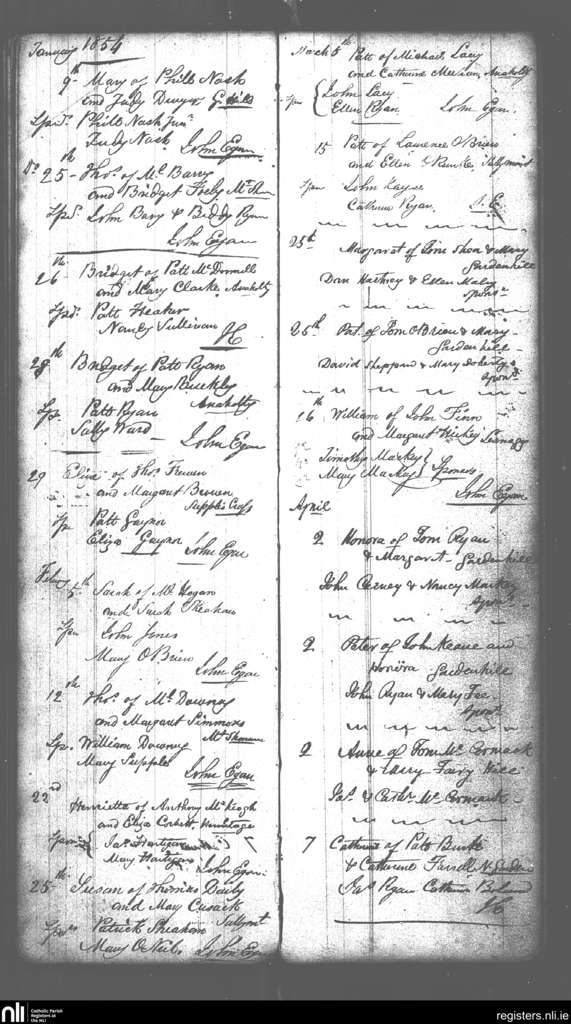 January 1854
9th Mary of Phill Nash
and Judy Dwyer G. Hill
Sprs. Phill Nash Junr
Judy Nash John Egan
Do 25th Thos. of Ml. Barry
and Bridget
Sprs. John Bary & Biddy Ryan
John Egan
26th Bridget of Patt McDonnell
and Mary Clarke Anaholty
Sprs. Patt Heaker
Nancy Sullivan JE
28th Bridget of Patt Ryan
and Mary Buckley
Spr Patt Ryan Anaholty
Sally Ward John Egan
29 Eliza of Thos.
and Margaret Brown
Supples Cross
Sp Patt Gaynor
Eliza Gaynor John Egan
Feby 5th Sarah of Ml. Hogan
and Sarah Sheahan
Spn John Jones
Mary O'Brien John Egan
12th Thos. of Ml. Downey
and Margaret Simmons
Spr. William Downey Mt Shannon
Mary Supples
John Egan
22nd Henrietta of Anthony McKeogh
and Eliza Corbett, Hermitage
Spons Jas. Hartigan
Mary Hartigan John Egan
25th Susan of Thomas Daily
and Mary Cusack
Spons Patrick Sheahan
Mary O'Neil John Egan
March 5th Patt of Michael Lacy
and Catherine Anaholty
Spn John Lacy
Ellen Ryan John Egan
15 Patt of Laurence O'Brien
and Ellen
Spn John
Catherine Ryan. J.E.
25th Margaret of Tom Shea & Mary
Gardenhill
Dan Hartney & Ellen
Spons
25th Pat. of Tom O'Brien & Mary
Gardenhill
David Sheppard & Mary Doherty
Spons
16th William of John Finn
and Margaret Hickey
Timothy Mackey
Mary Mackey Sponsors
John Egan
April
2 Honora of Tom Ryan
& Margaret - Gardenhill
John & Nancy Mackey
Spons
2 Peter of John Keane and
Honora Gardenhill
John Ryan & Mary Fee
Spons
2 Anne of Tom McCormack
& Fairy Hill
Jas. & Cathr. McCormack
7 Catherine of Patt Burke
& Catherine Farrell N. Garden
Jas Ryan Catherine
JE
nli
Catholic Parish
Registers at
the NLI
registers.nli.ie